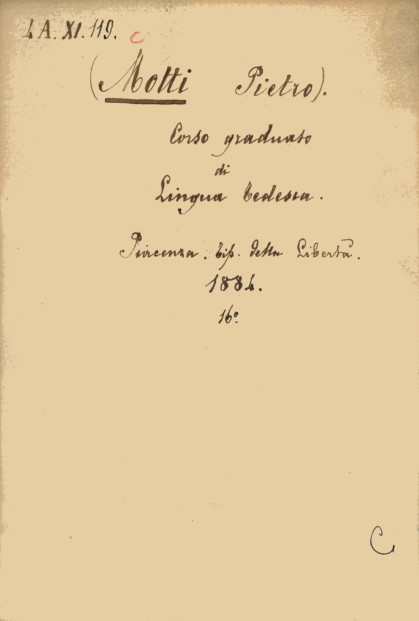 4 A. XI. 119. C
(Motti Pietro).
Corso graduato
di
Lingua tedesca.
Piacenza. tip. della Libertà.
1884.
16º
C